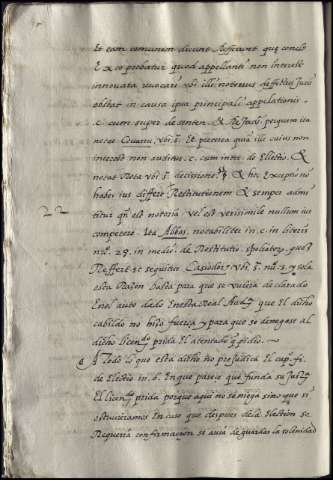 Et eam comunem dicunt Asserunt que conclo
Ex eo probatur quod appellanti non interest
innovata revocari vbi illi notorius deffectus Juris
obstat in causa ipsa principali appelationis
c. cum super de senten. & Re Jud. per quem ita
notat Covarru. vbi s. Et preterea quia illi cuius non
interest non auditur c. cum inter de Electio. &
notat Rota vbi s. decissione & hec exceptio non
habet ius differt Restitutionem & semper admi
titur qn est notoria vel est verisimile nullum ius
competere. Ita Abbas. notabiliter in c. in literis
nu. 25. in medio. de Restitutio. spoliator. quem
Reffert et sequitur Casiodor. vbi s. nu. 2. y sola
esta Razon basta para que se vuiera declarado
En el auto dado En esta Real Aud. que El dicho
cabildo no hizo fuerça y para que se denegase al
dicho licen. prida El atentado q pidio.
¶ A todo lo que esta dicho no prejudica El cap. fi.
de Electio in 6. En que parece que funda su Just.
El licen. prida porque aqui no se niega sino que si
estuuieramos En caso que despues dela Election se
Requeria confirmacion se auia de guardar la solenidad
22